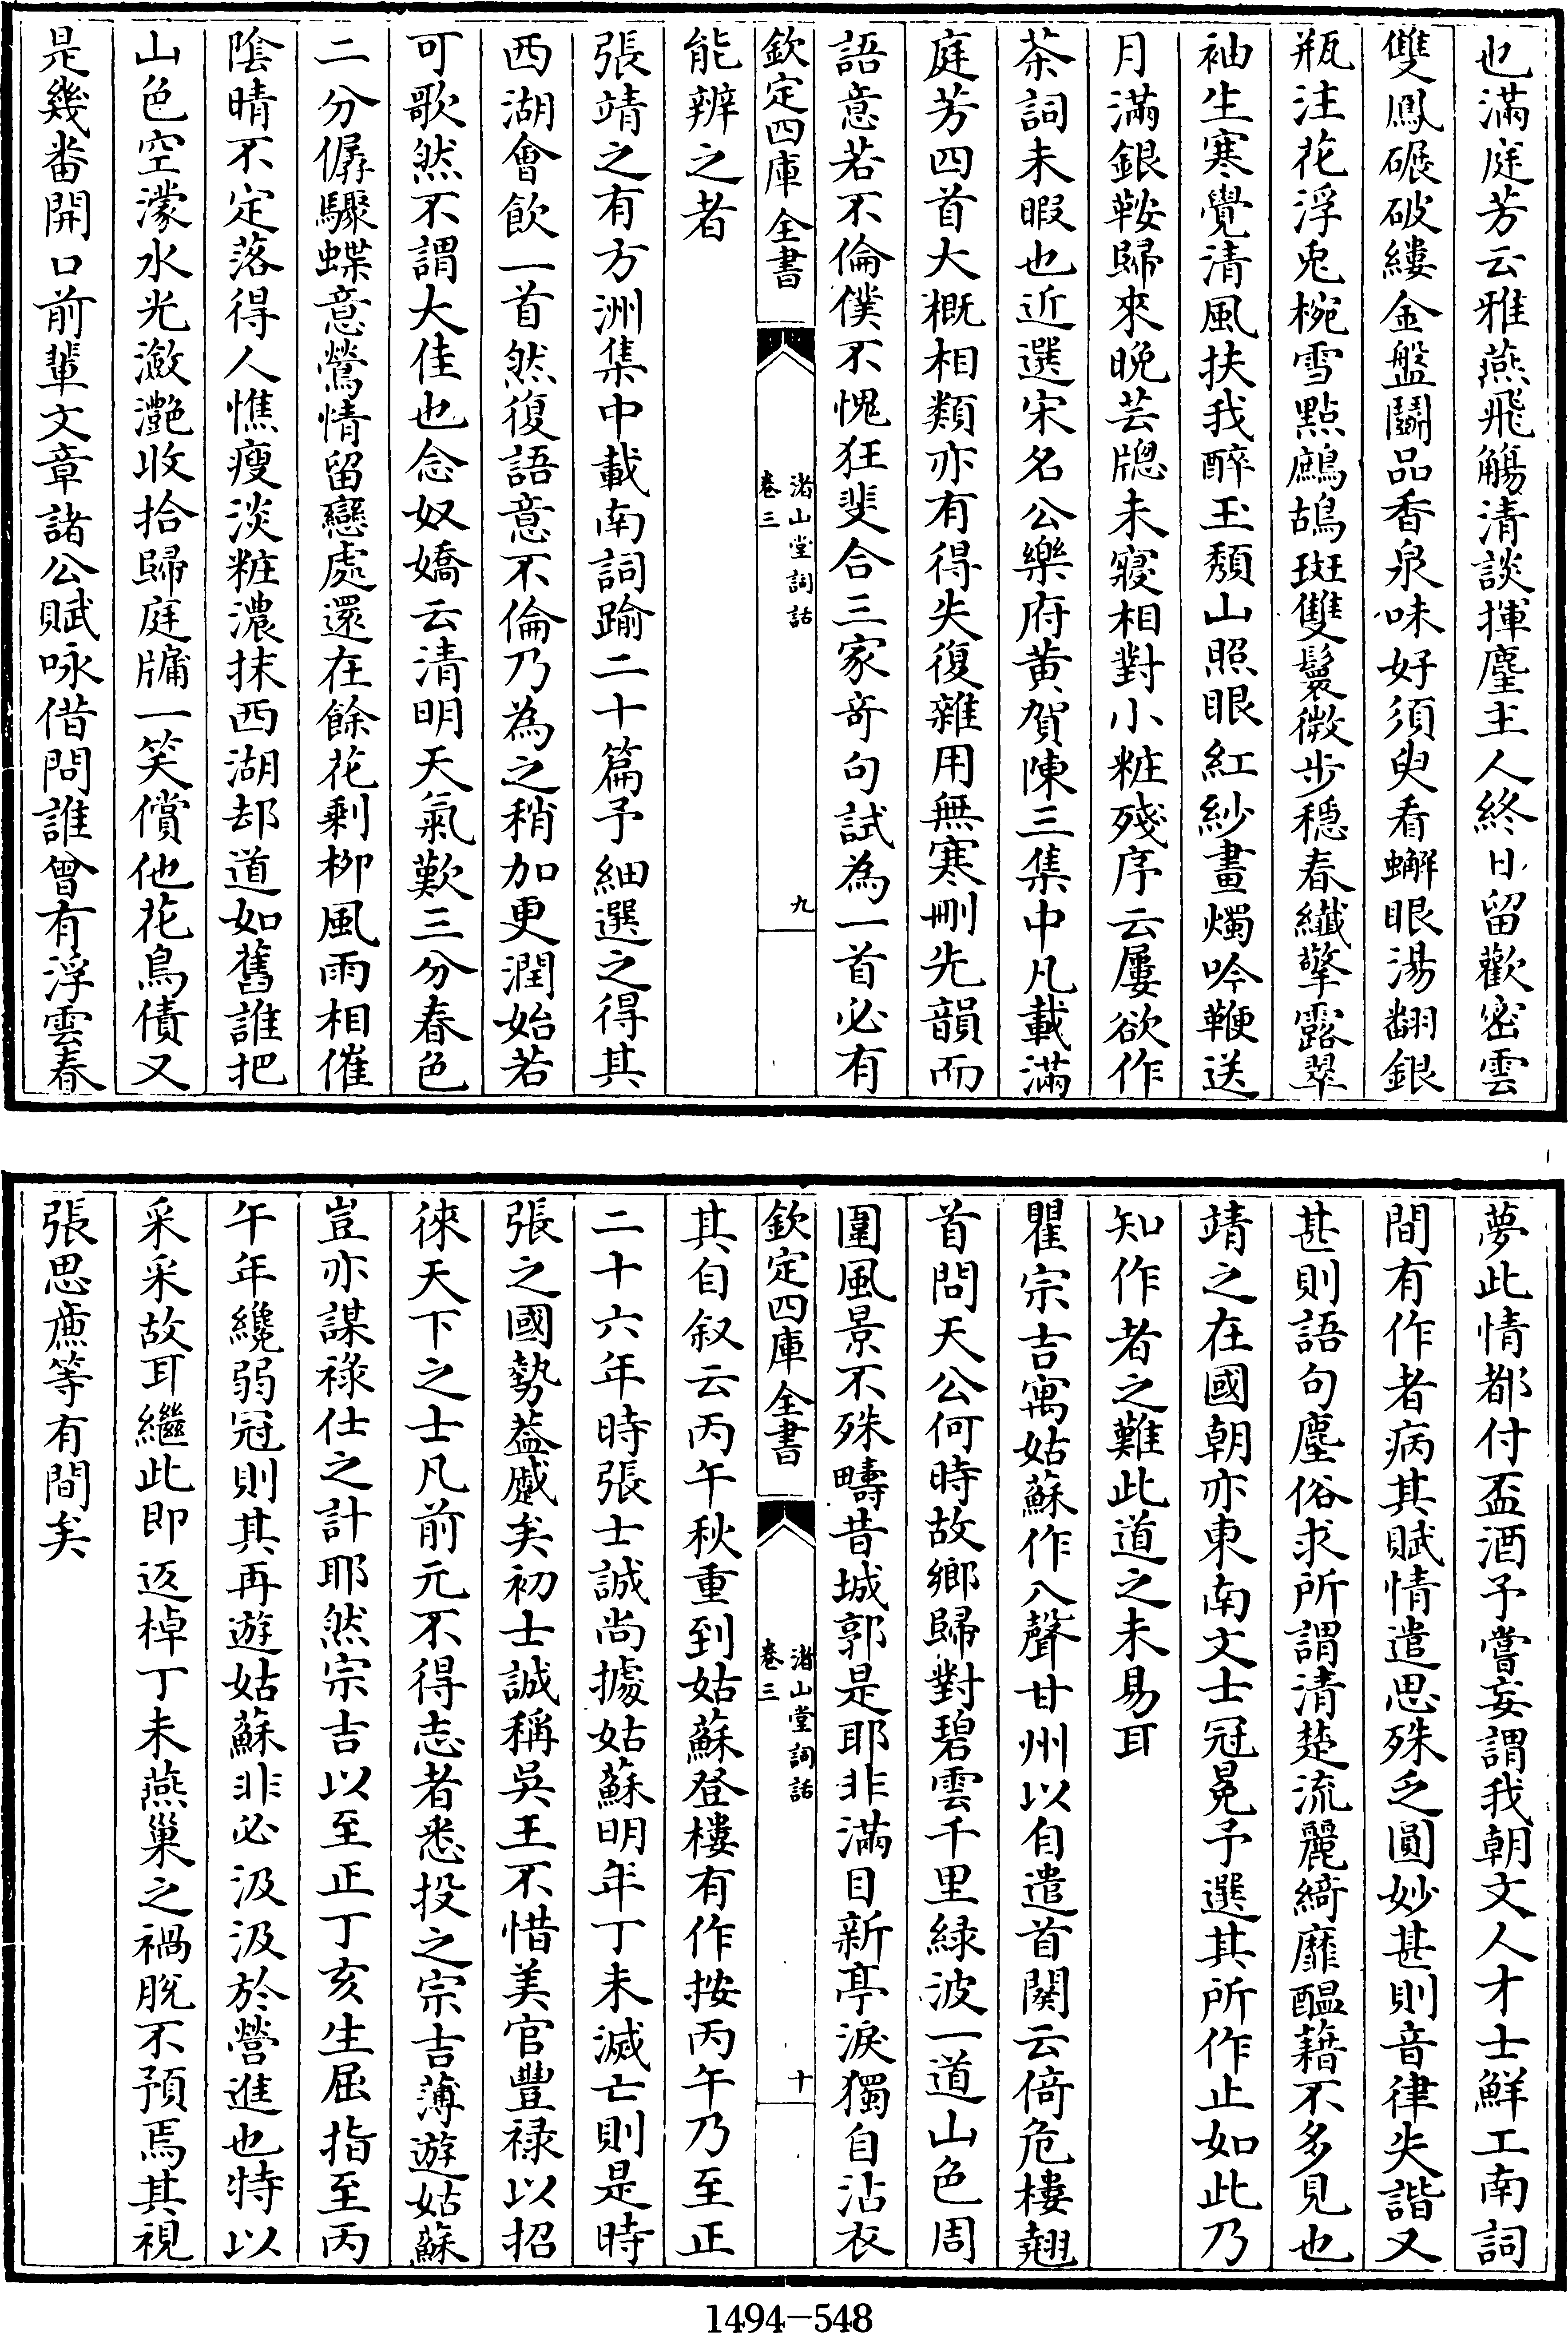 也滿庭芳云雅燕飛觴清談揮麈主人終日留歡密雲
雙鳳碾破縷金盤鬬品香泉味好須臾看蠏眼湯翻銀
瓶注花浮兎椀雪點鷓鴣斑雙鬟微步穩春纖擎露翠
袖生寒覺清風扶我醉玉頽山照眼紅紗畫燭吟鞭送
月滿銀鞍歸來晚芸牕未寢相對小粧殘序云屢欲作
茶詞未暇也近選宋名公樂府黄賀陳三集中凡載滿
庭芳四首大概相類亦有得失復雜用無寒刪先韻而
語意若不倫僕不愧狂斐合三家竒句試為一首必有
欽定四庫全書
渚山堂詞話
卷三
九
能辨之者
張靖之有方洲集中載南詞踰二十篇予細選之得其
西湖會飲一首然復語意不倫乃為之稍加更潤始若
可歌然不謂大佳也念奴嬌云清明天氣歎三分春色
二分僝驟蝶意鶯情留戀處還在餘花剩栁風雨相催
陰晴不定落得人憔瘦淡粧濃抹西湖却道如舊誰把
山色空濛水光瀲灔收拾歸庭牗一笑償他花鳥債又
是幾番開口前輩文章諸公賦咏借問誰曾有浮雲春
夢此情都付盃酒予嘗妄謂我朝文人才士鮮工南詞
間有作者病其賦情遣思殊乏圓妙甚則音律失諧又
甚則語句塵俗求所謂清楚流麗綺靡醖藉不多見也
靖之在國朝亦東南文士冠冕予選其所作止如此乃
知作者之難此道之未易耳
瞿宗吉寓姑蘇作入聲甘州以自遣首闋云倚危樓翹
首問天公何時故鄉歸對碧雲千里緑波一道山色周
圍風景不殊疇昔城郭是耶非滿目新亭淚獨自沾衣
欽定四庫全書
渚山堂詞話
卷三
十
其自叙云丙午秋重到姑蘇登樓有作按丙午乃至正
二十六年時張士誠尚據姑蘇明年丁未滅亡則是時
張之國勢益蹙矣初士誠稱吳王不惜美官豐禄以招
徠天下之士凡前元不得志者悉投之宗吉薄遊姑蘇
豈亦謀祿仕之計耶然宗吉以至正丁亥生屈指至丙
午年纔弱冠則其再遊姑蘇非必汲汲於營進也特以
采采故耳繼此即返棹丁未燕巢之禍脫不預焉其視
張思亷等有間矣
1494-548